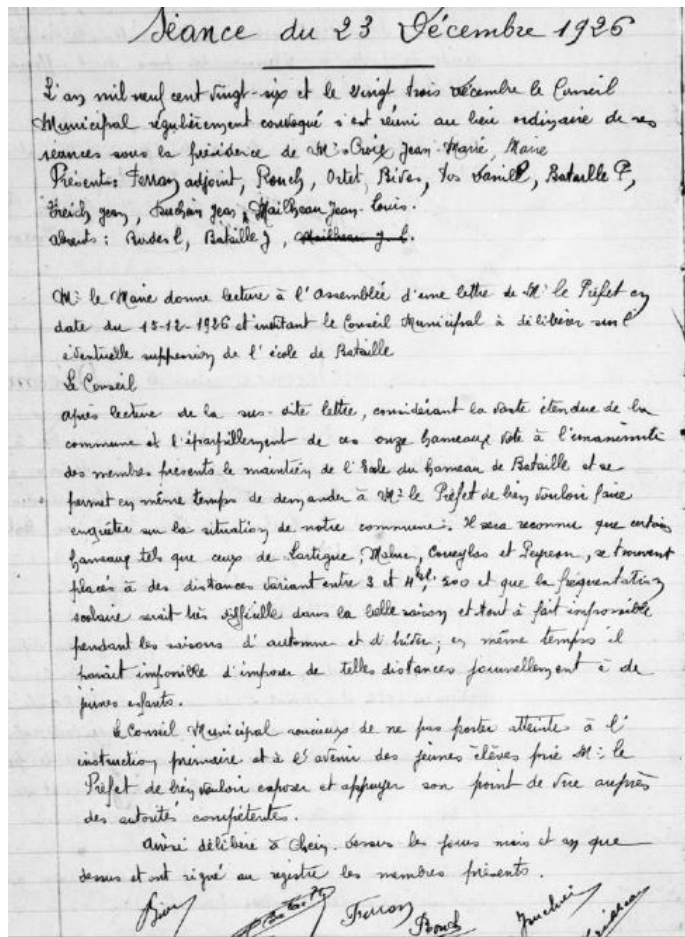 Séance du 23 Décembre 1926
L'an mil neuf cent vingt-six et le vingt trois décembre le Conseil
Municipal régulièrement convoqué s'est réuni au lieu ordinaire de ses
séances sous la présidence de Mr Croix Jean-Marie, Maire
Présents: Ferran adjoint, Rouch, Ortet, Bives, Vos Daniel P, Bataille P,
Freich Jean, Jean, Mailheau Jean-Louis.
absents: Budos C, Bataille J, Mailheau J. L.
Mr le Maire donne lecture à l'assemblée d'une lettre de Mr le Préfet en
date du 15-12-1926 et invitant le Conseil Municipal à délibérer sur l'
éventuelle suppression de l'école de Bataille
Le Conseil
après lecture de la sus-dite lettre, considérant la vaste étendue de la
commune et l'éparpillement de ces onze hameaux vote à l'unanimité
des membres présents le maintien de l'Ecole du hameau de Bataille et se
permet en même temps de demander à Mr le Préfet de bien vouloir faire
enquêter sur la situation de notre commune. Il sera reconnu que certains
hameaux tels que ceux de Lartigue, Coueylas et Peyreou, se trouvent
placés à des distances variant entre 3 et 4 kil. 500 et que la fréquentation
scolaire serait très difficile dans la belle saison et tout à fait impossible
pendant les saisons d'automne et d'hiver; en même temps il
parait impossible d'imposer de telles distances journellement à de
jeunes enfants.
Le Conseil Municipal soucieux de ne pas porter atteinte à l'
instruction primaire et à l'avenir des jeunes élèves prie Mr le
Préfet de bien vouloir exposer et appuyer son point de vue auprès
des autorités compétentes.
Ainsi délibéré à Chein-dessus les jours mois et an que
dessus et ont signé au registre les membres présents.
Ferran Rouch